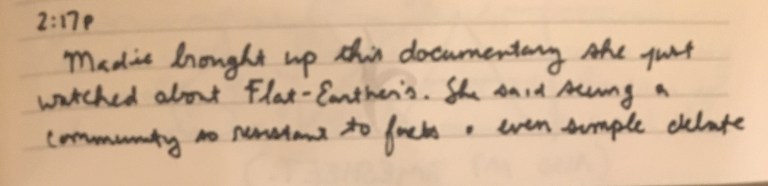 2:17p
Madie brought up this documentary she just
watched about Flat-Earther's. She said seeing a
community so resistant to facts • even simple debate